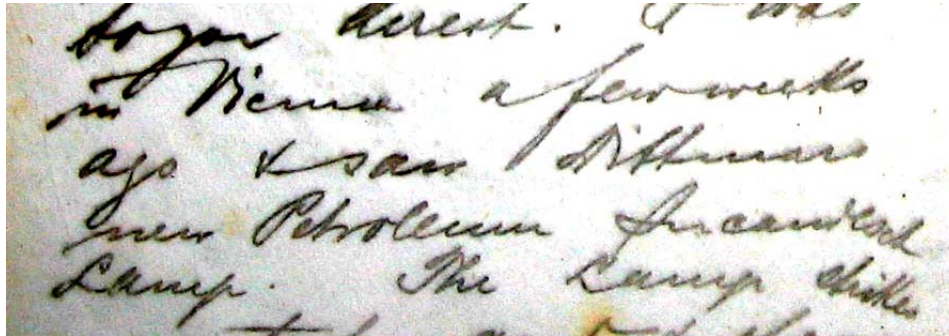 to you direct. I was
in Vienna a few weeks
ago & saw Dittmars
new Petroleum Incandesct
Lamp. The Lamp strikes